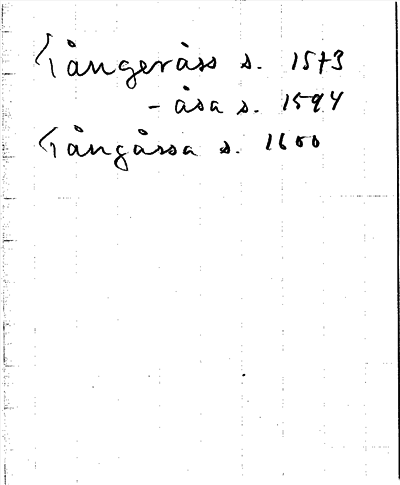 Tångeråss s. 1573
- åsa s. 1594
Tångåssa s. 1600